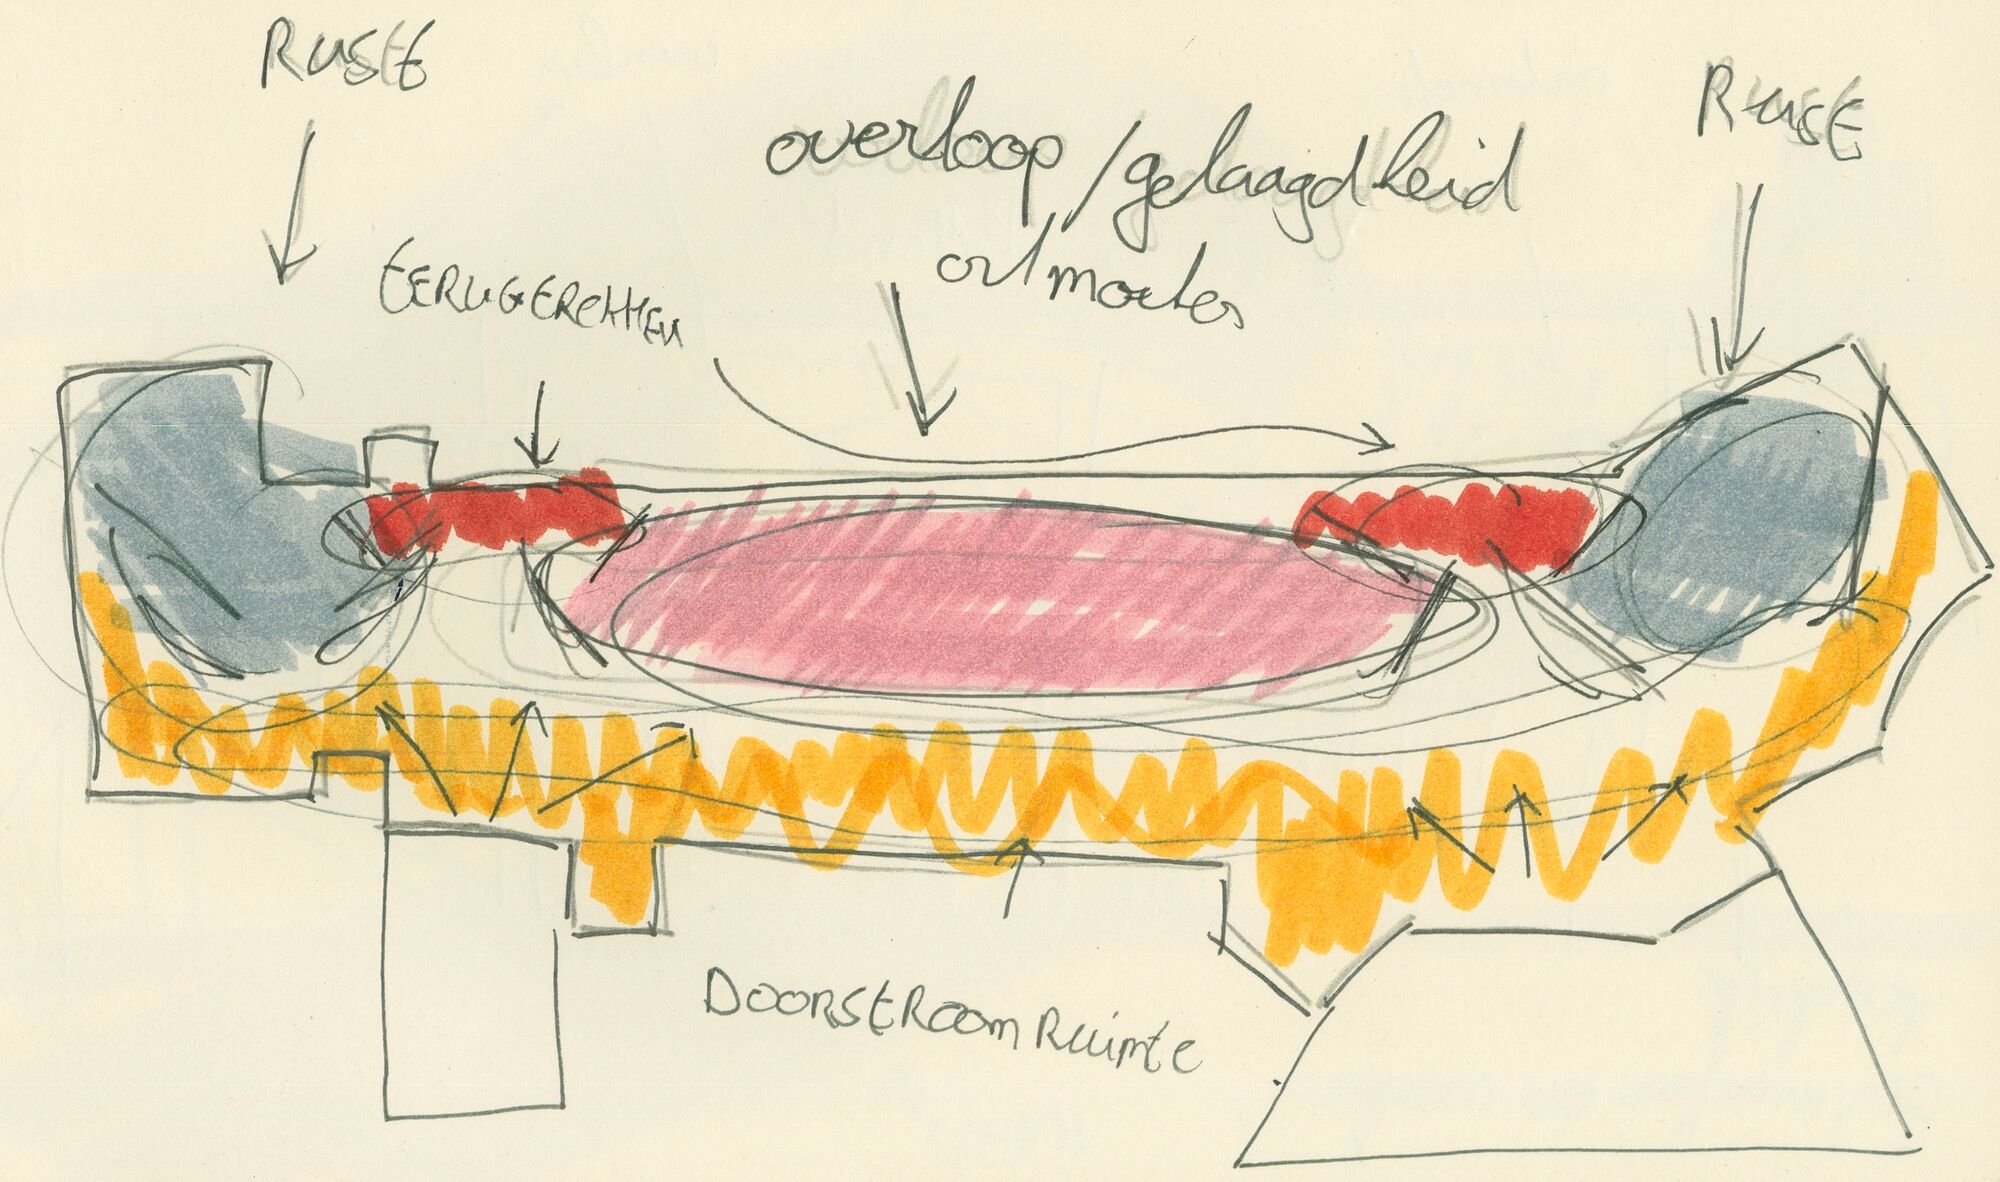 RUSt
RUSt
overloop/gelaagdheid
ontmoeten
tERUGGEtROKKEN
DOORStROOMRUimte